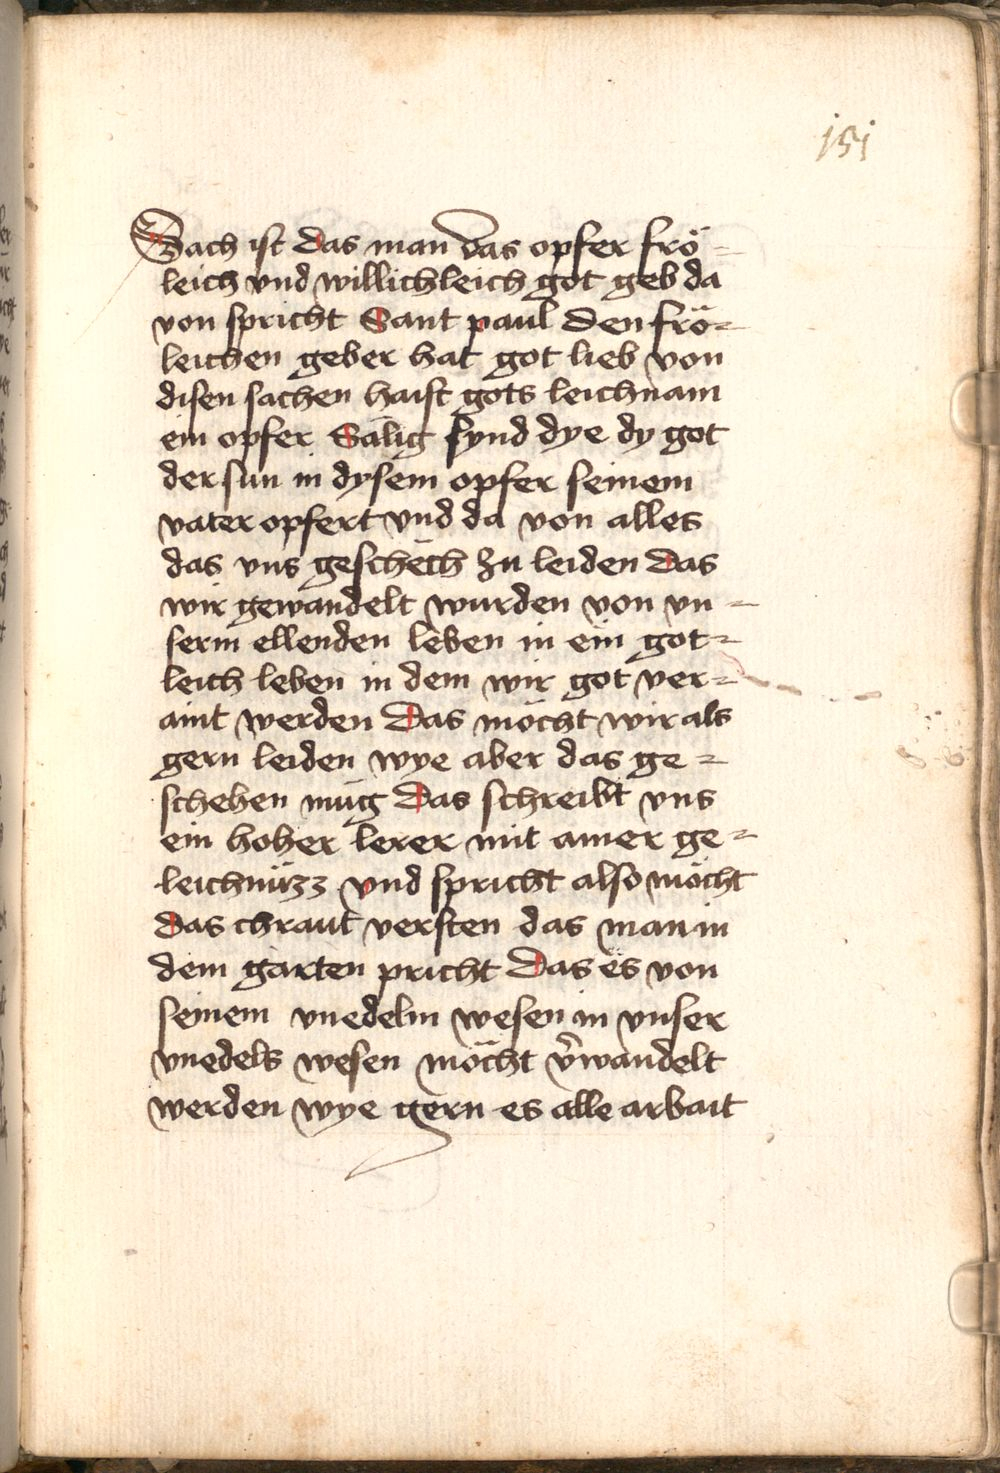 151
Sach ist das man das opfer frö-
leich vnd willichleich got geb da
von spricht Sant paul den frö-
leichen geber hat got lieb von
disen sachen haist gots leichnam
ein opfer Sälig synd dye dy got
der sun in dysem opfer seinem
vater opfert vnd da von alles
das vns geschech zu leiden das
wir gewandelt wurden von vn-
serm ellenden leben in ein got-
leich leben in dem wir got ver-
aint werden Das möcht wir als
gern leiden wye aber das ge-
schehen müg Das schreibt vns
ein hoher lerer mit ainer ge-
leichnüzz vnd spricht also möcht
das chraut versten das man in
dem garten pricht Das es von
seinem vnedelm wesen in vnser
vnedels wesen möcht v̾wandelt
werden wye gern es alle arbait